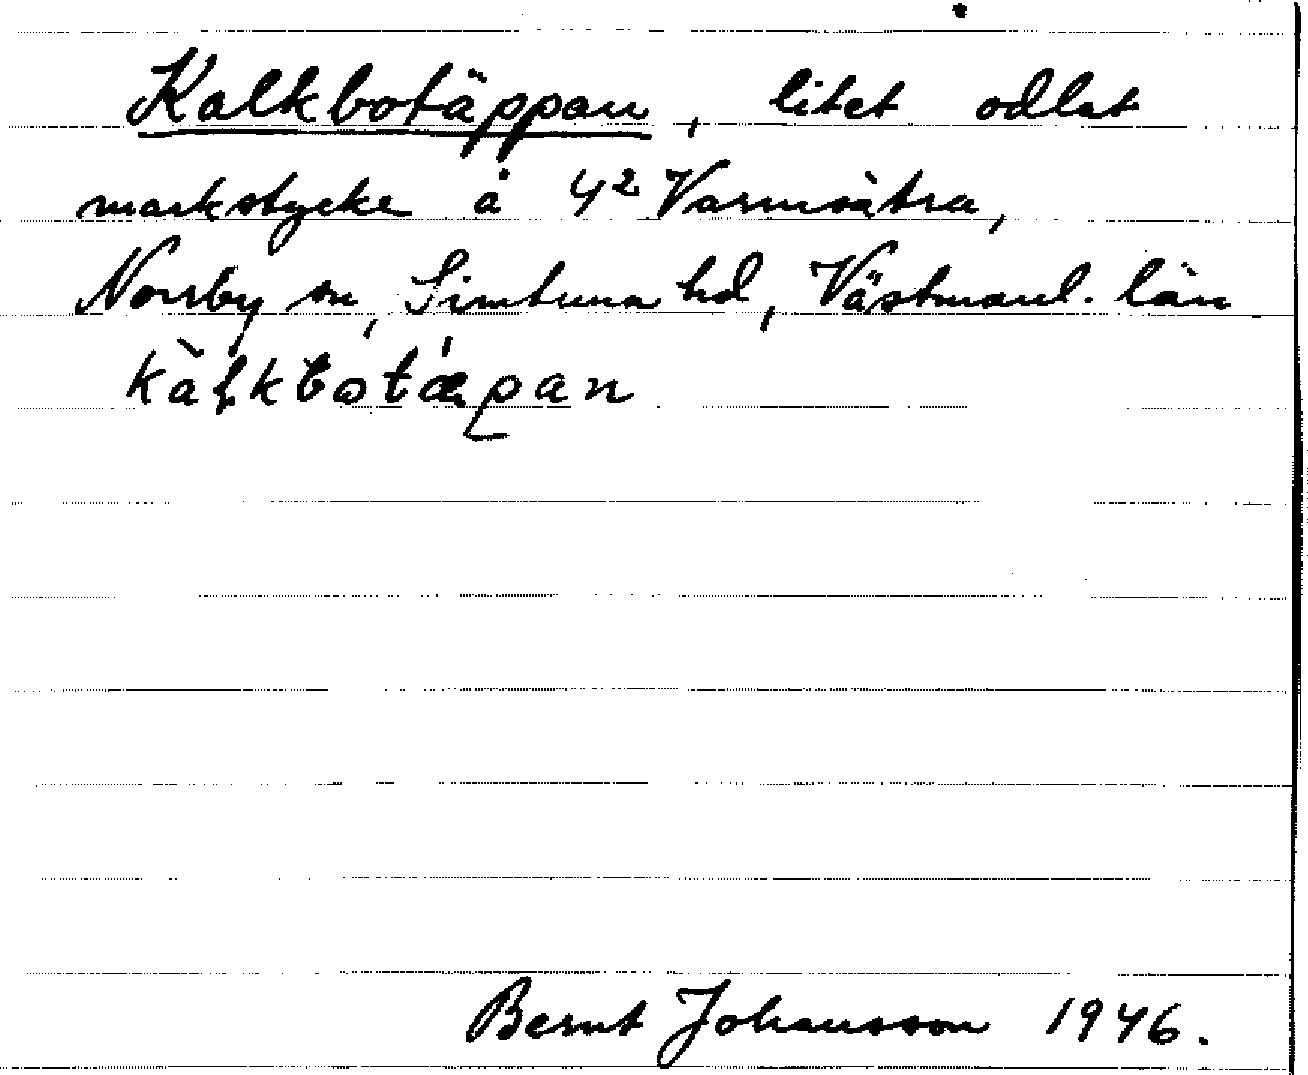 Kalkbotäppan, litet odlat
markstycke å 4² Varmsätra,
Norrby sn, Simtuna hd, Västmanl. län
kàl̨kbotǽpan
Bernt Johansson 1946.